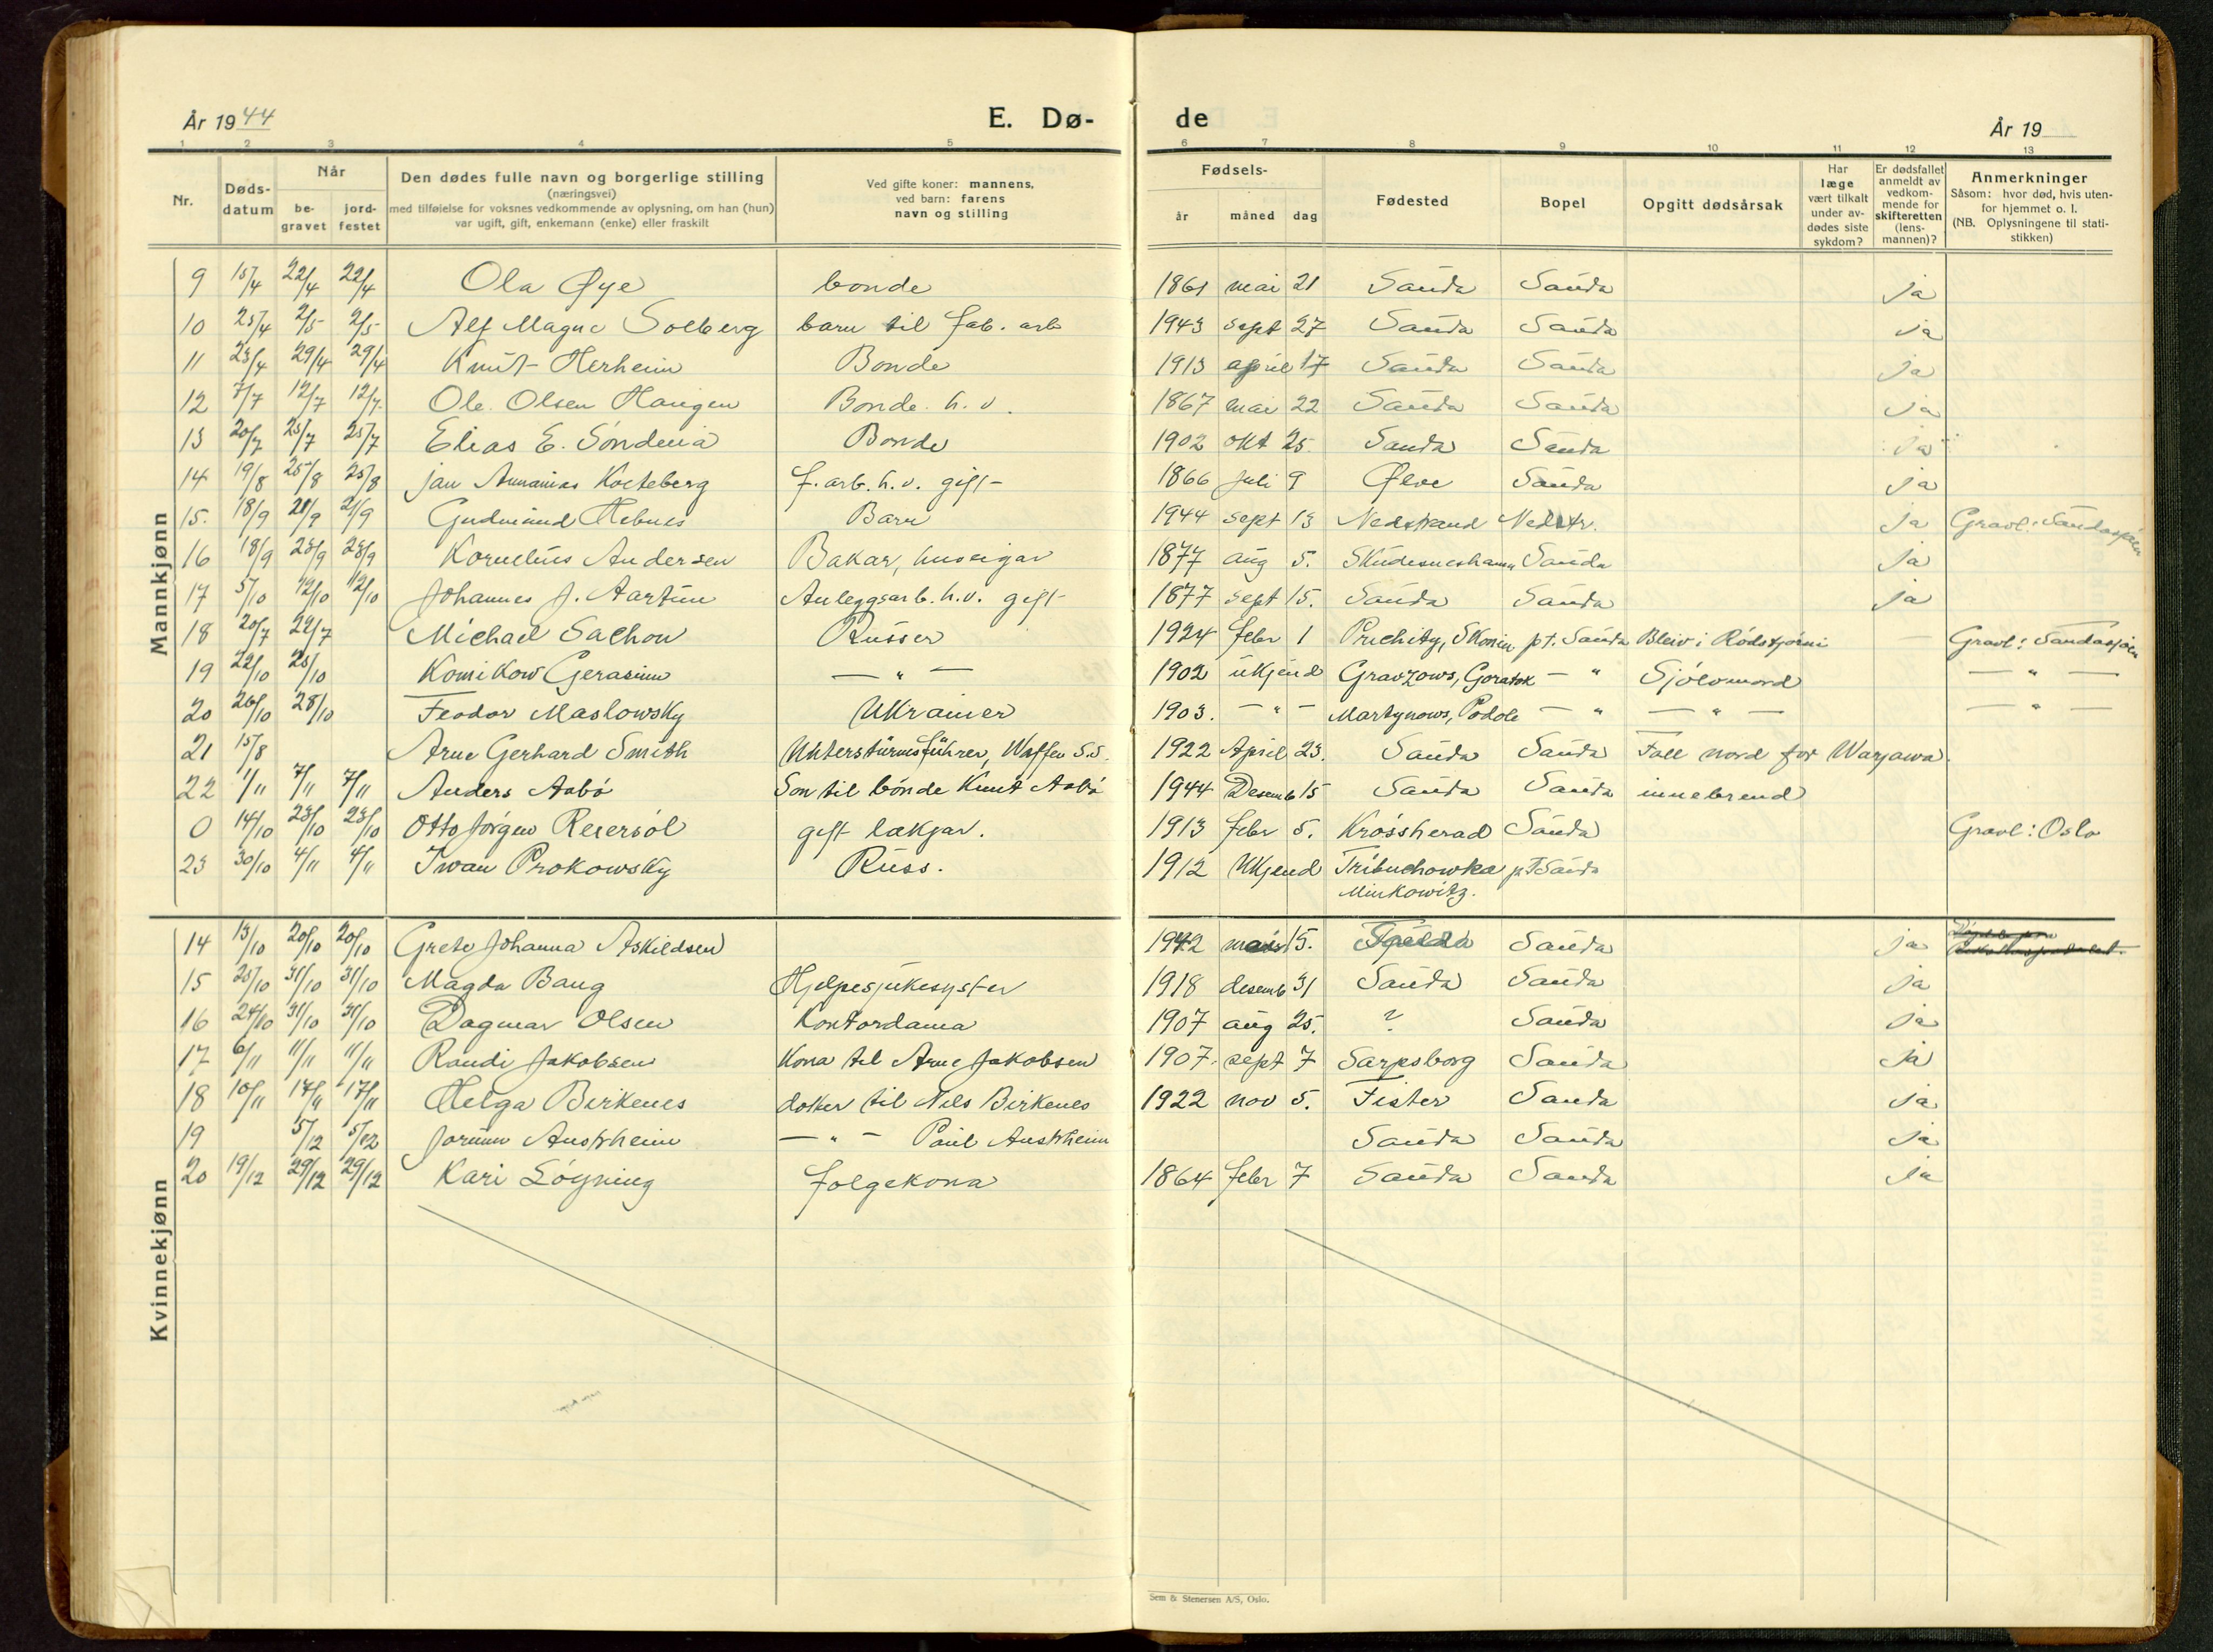 År 1944
E. Dø-
de
År 19
1 2 3 4 5 6 7 8 9 10 11 12 13
Nr.
Døds-
datum
Når
be-
gravet
jord-
festet
Den dødes fulle navn og borgerlige stilling
(næringsvei)
med tilføielse for voksnes vedkommende av oplysning, om han (hun)
var ugift, gift, enkemann (enke) eller fraskilt
Ved gifte koner: mannens,
ved barn: farens
navn og stilling
Fødsels-
år måned dag
Fødested
Bopel
Opgitt dødsårsak
Har
læge
vært tilkalt
under av-
dødes siste
sykdom?
Er dødsfallet
anmeldt av
vedkom-
mende for
skifteretten
(lens-
mannen)?
Anmerkninger
Såsom: hvor død, hvis uten-
for hjemmet o. l.
(NB. Oplysningene til stati-
stikken)
Mannkjønn
9 15/4 22/4 22/4 Ola Øye bonde 1861 mai 21 Sauda Sauda ja
10 25/4 2/5 2/5 Alf Magne Solberg barn til fab. arb 1943 sept 27 Sauda Sauda ja
11 23/4 29/4 29/4 Knut Herheim Bonde 1913 april 17 Sauda Sauda ja
12 7/7 12/7 12/7 Ole Olsen Haugen Bonde h. v. 1867 mai 22 Sauda Sauda ja
13 20/7 25/7 25/7 Elias E. Søndenå Bonde 1902 okt 25 Sauda Sauda ja
14 19/8 25/8 25/8 Jan Annanias Kocteberg f. arb. h. v. gift 1866 juli 9 Ølve Sauda ja
15. 18/9 21/9 21/9 Gudmund Hebnes Barn 1944 sept 13 Nedstrand Nedstr. ja Gravl: Saudasjøen
16 18/9 23/9 23/9 Kornelius Andersen Bakar, huseigar 1877 aug 5. Skudesneshamn Sauda ja
17 5/10 12/10 12/10 Johannes J. Aartun Anleggsarb. h. v. gift 1877 sept 15. Sauda Sauda ja
18 20/7 22/7 Michael Sachow Russer 1924 febr 1 Prichity, Skonin pt. Sauda Bleiv i Rødstjørni Gravl: Saudasjøen
19 22/10 25/10 Komikow Gerasimn — " — 1902 ukjend Gravzows, Goratok — " Sjølvmord — " —
20 26/10 28/10 Feodor Maslowsky Ukrainer 1903. — " — Martynows, Podole — " — " — — " —
21 15/8 Arne Gerhard Smith Untersturmsführer, Waffen S.S. 1922 April 23. Sauda Sauda Fall nord for Warzawa.
22 1/11 7/11 7/11 Anders Aabø Son til bonde Knut Aabø 1944 Desemb 15 Sauda Sauda innebrend
0 14/10 23/10 23/10 Otto Jørgen Reiersøl gift lækjar. 1913 febr 5. Krøssherad Sauda Gravl: Oslo
23 30/10 4/11 4/11 Iwan Prokowsky Russ. 1912 Ukjend Tribuchowka pt Sauda
Minkowitz.
Kvinnekjønn
14 13/10 20/10 20/10 Grete Johanna Askildsen 1942 mars 15. Sauda ja
15 25/10 31/10 31/10 Magda Baug Hjelpesjukesyster 1918 desemb 31 Sauda Sauda ja
16 24/10 31/10 31/10 Dagmar Olsen Kontordama 1907 aug 25. ? Sauda ja
17 6/11 11/11 11/11 Randi Jakobsen Kona til Arne Jakobsen 1907. sept 7 Sarpsborg Sauda ja
18 10/11 17/11 17/11 Helga Birkenes dotter til Nils Birkenes 1922 nov 5. Fister Sauda ja
19 5/12 5/12 Jorunn Austrheim — " — Paul Austrheim Sauda Sauda ja
20 19/12 29/12 29/12 Kari Løyning folgekona 1864 febr 7 Sauda Sauda ja
Sem & Stenersen A/S, Oslo.